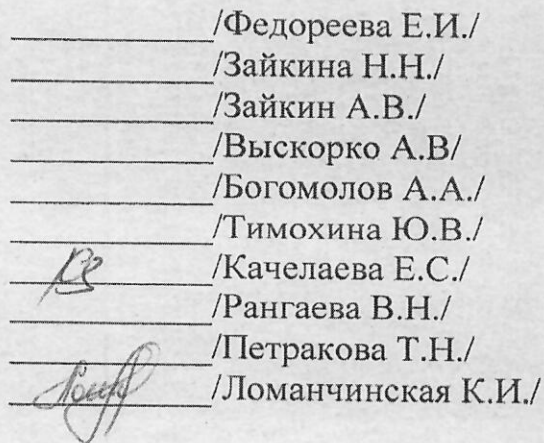 /Федореева Е.И./
/Зайкина Н.Н./
/Зайкин А.В./
/Выскорко А.В/
/Богомолов А.А./
/Тимохина Ю.В./
/Качелаева Е.С./
/Рангаева В.Н./
/Петракова Т.Н./
/Ломанчинская К.И./